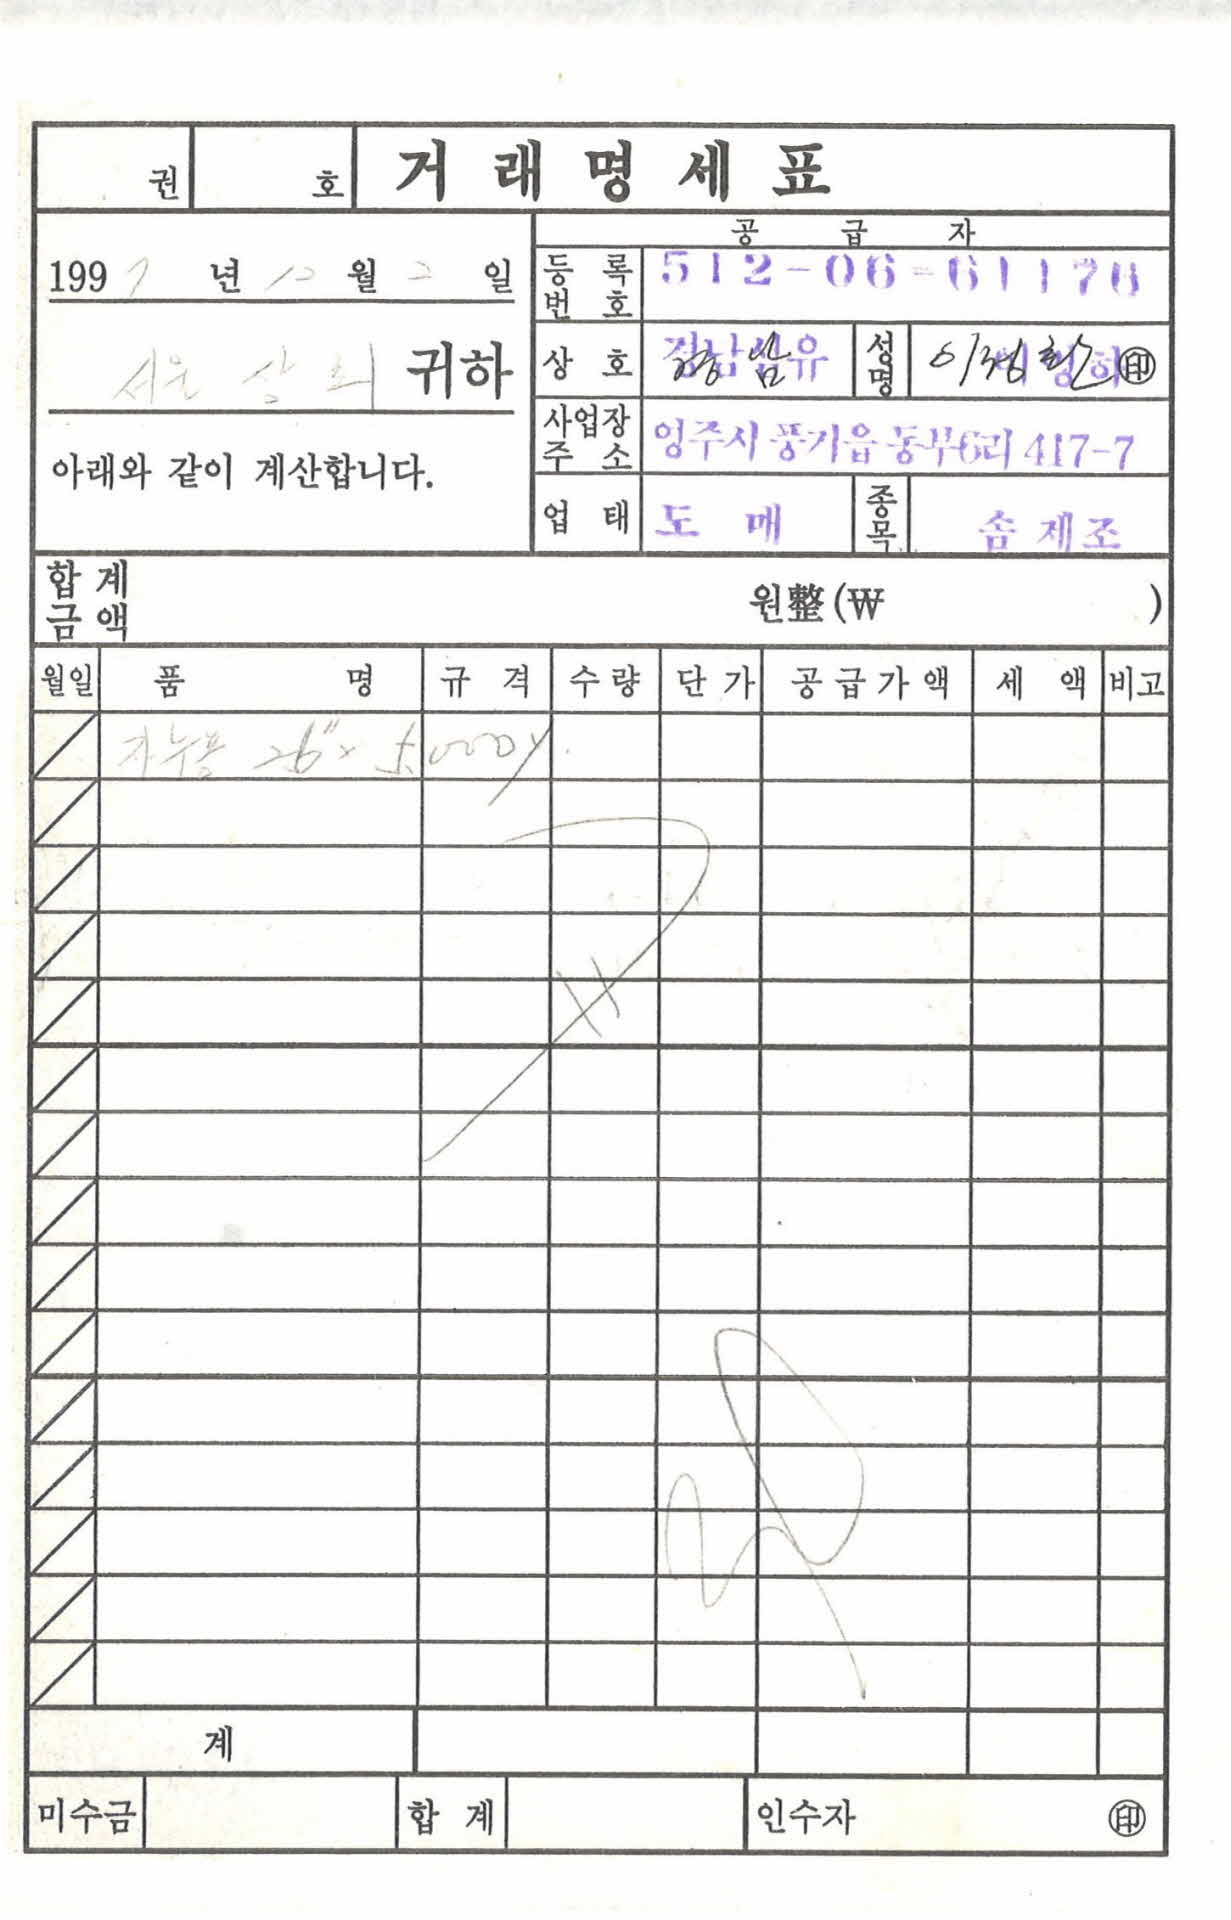 권 호 거래명세표
공급자
1997년 10월 2일
등록번호 512-06-61176
서울상회 귀하
상호 경남섬유 성명 이정환 印
아래와 같이 계산합니다.
사업장주소 영주시 풍기읍 동부6리 417-7
업태 도매 종목 솜제조
합계금액 원整(₩ )
월일 품명 규격 수량 단가 공급가액 세액 비고
자누풍 26" × 5,000y.
계
미수금 합계 인수자 印